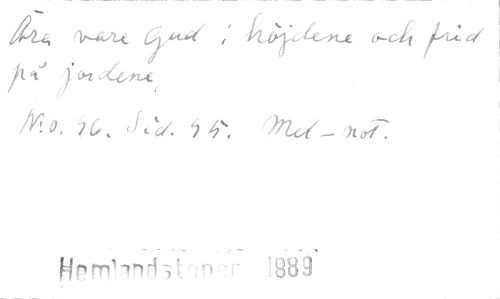 Ära vare Gud i höjdene och frid
på jordene.
No. 96. Sid. 95. Mel-not.
Hemlandstoner 1889